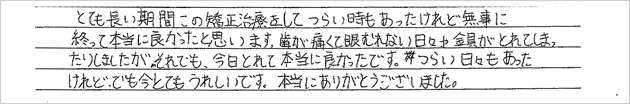 とても長い期間この矯正治療をしてつらい時もあったけれど無事に
終って本当に良かったと思います。歯が痛くて眠むれない日々や金具がとれてしまっ
たりしましたが、それでも、今日とれて本当に良かったです。つらい日々もあった
けれど、でも今とてもうれしいです。本当にありがとうございました。